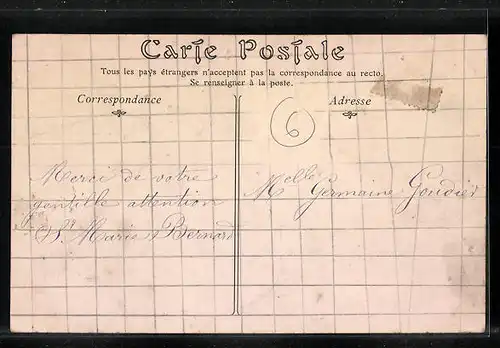 Carte Postale
Tous les pays étrangers n'acceptent pas la correspondance au recto.
Se renseigner à la poste.
Correspondance
Adresse
6
Merci de votre
gentille attention
Marie Bernard
Melle Germaine Goudier